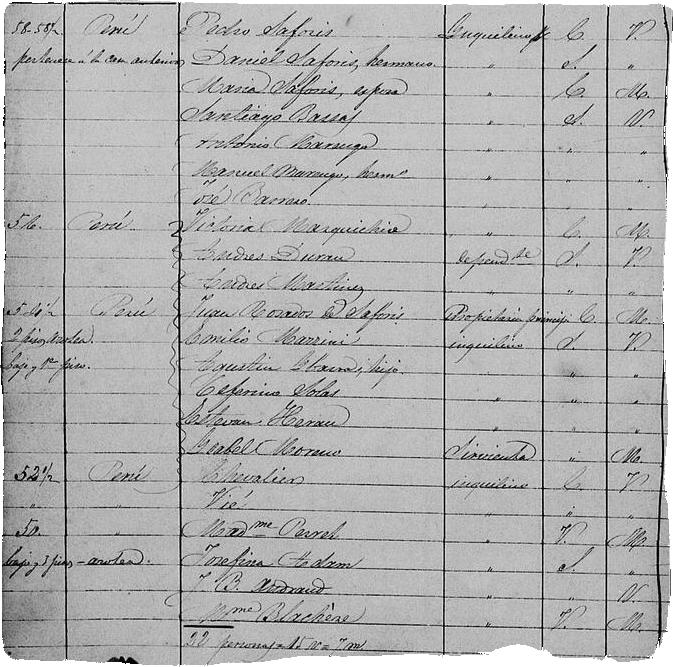 58-58½ Perú Pedro Saforis Inquilino C. V.
pertenece á la casa anterior Daniel Saforis, hermano " S. "
Maria Saforis, esposa " C. M.
Santiago Bassas " S. V.
Antonio " " "
Manuel herm⁰ " " "
José Barroso " " "
56. Perú Victoria " C. M.
Andres Duran depend.te S. V.
Andres Martinez " " "
54½ Perú Juan Rosados Saforis Propietaria C. M.
2 piso, azotea Emilio Mazzini inquilino S. V.
bajo y 1er piso. Agustin hijo " " "
Ceferino Solas " " "
Estevan " " "
Isabel Moreno Sirvienta " M.
52½ Perú Chevalier inquilino C. V.
" " Vié " " "
50. " Mad.me Perret " V. M.
bajo y 3 piso - azotea. Josefina Adam " S. "
J. B. " V.
Mme V. M.
22 personas = 15 v = 7 m